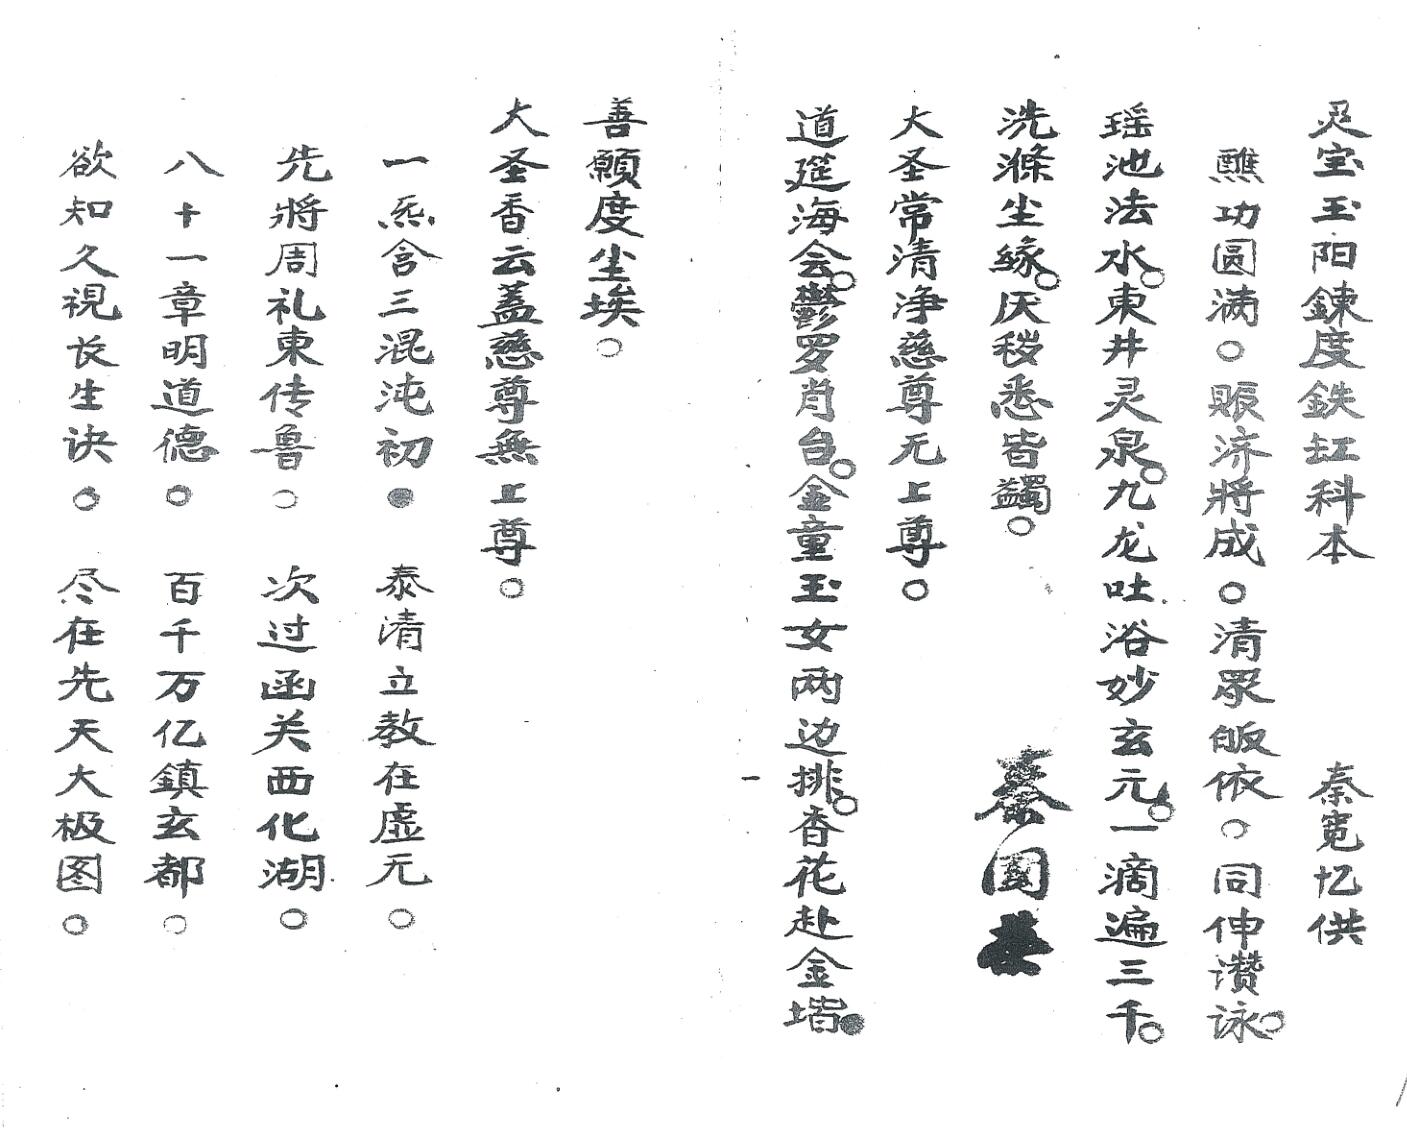 灵宝玉阳鍊度鉄缸科本 秦寛忆供
醮功圆满○赈济將成○清眾皈依○同伸讚咏○
瑶池法水○東井灵泉○九龙吐浴妙玄元○一滴遍三千○
洗滌尘緣○厌秽悉皆蠲○
秦國
大圣常清浄慈尊无上尊○
道筵海会○鬱罗肖台○金童玉女两边排○香花赴金堦●
善願度尘埃○
大圣香云蓋慈尊無上尊○
一炁含三混沌初● 泰清立教在虚无○
先將周礼東传鲁○ 次过函关西化湖○
八十一章明道德○ 百千万亿鎮玄都○
欲知久視长生诀○ 尽在先天大极图○